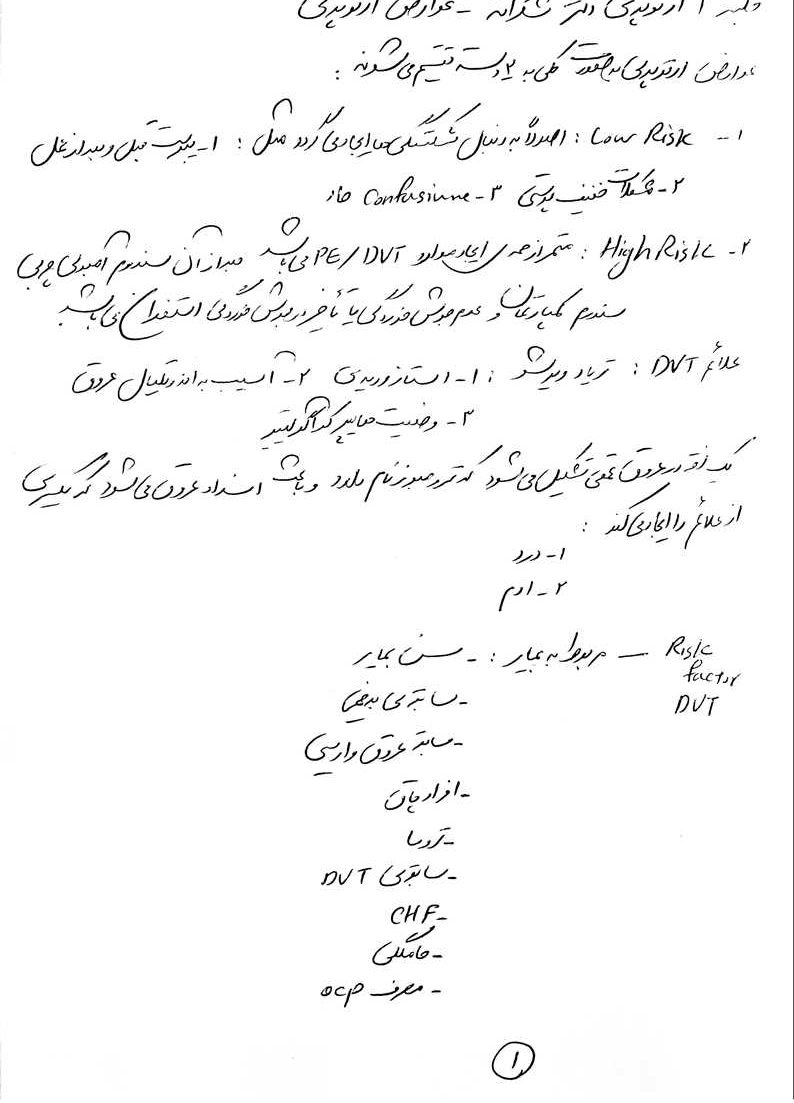 جلسه ۱ ارتوپدی دکتر شکرانه - عوارض ارتوپدی
عوارض ارتوپدی بصورت کلی به ۲ دسته تقسیم می‌شوند :
۱- Low Risk : اصولاً به دنبال شکستگی ها ایجاد می گردد مثل : ۱- یبوست قبل و بعد از عمل
۲- مشکلات خفیف پوستی ۳- Confusion ها
۲- High Risk : ایجاد موارد PE/DVT می باشد بعد از آن سندروم آمبولی چربی
سندرم کمپارتمان و عدم جوش خوردگی یا تأخیر در جوش خوردگی استخوان می باشد
علائم DVT : تریاد ویرشو : ۱- استاز وریدی ۲- آسیب به اندوتلیال عروق
۳- وضعیت هایپرکواگولیتید
یک لخته در عروق عمقی تشکیل می شود که ترومبوز نام دارد و باعث انسداد عروق می شود که یکسری
از علائم را ایجاد می کند :
۱- درد
۲- ادم
Risk Factor DVT — مربوط به بیمار : - سن بیمار
- سابقه ی بدخیمی
- سابقه عروق واریسی
- افراد چاق
- تروما
- سابقه ی DVT
- CHF
- حاملگی
- مصرف OCP
۱